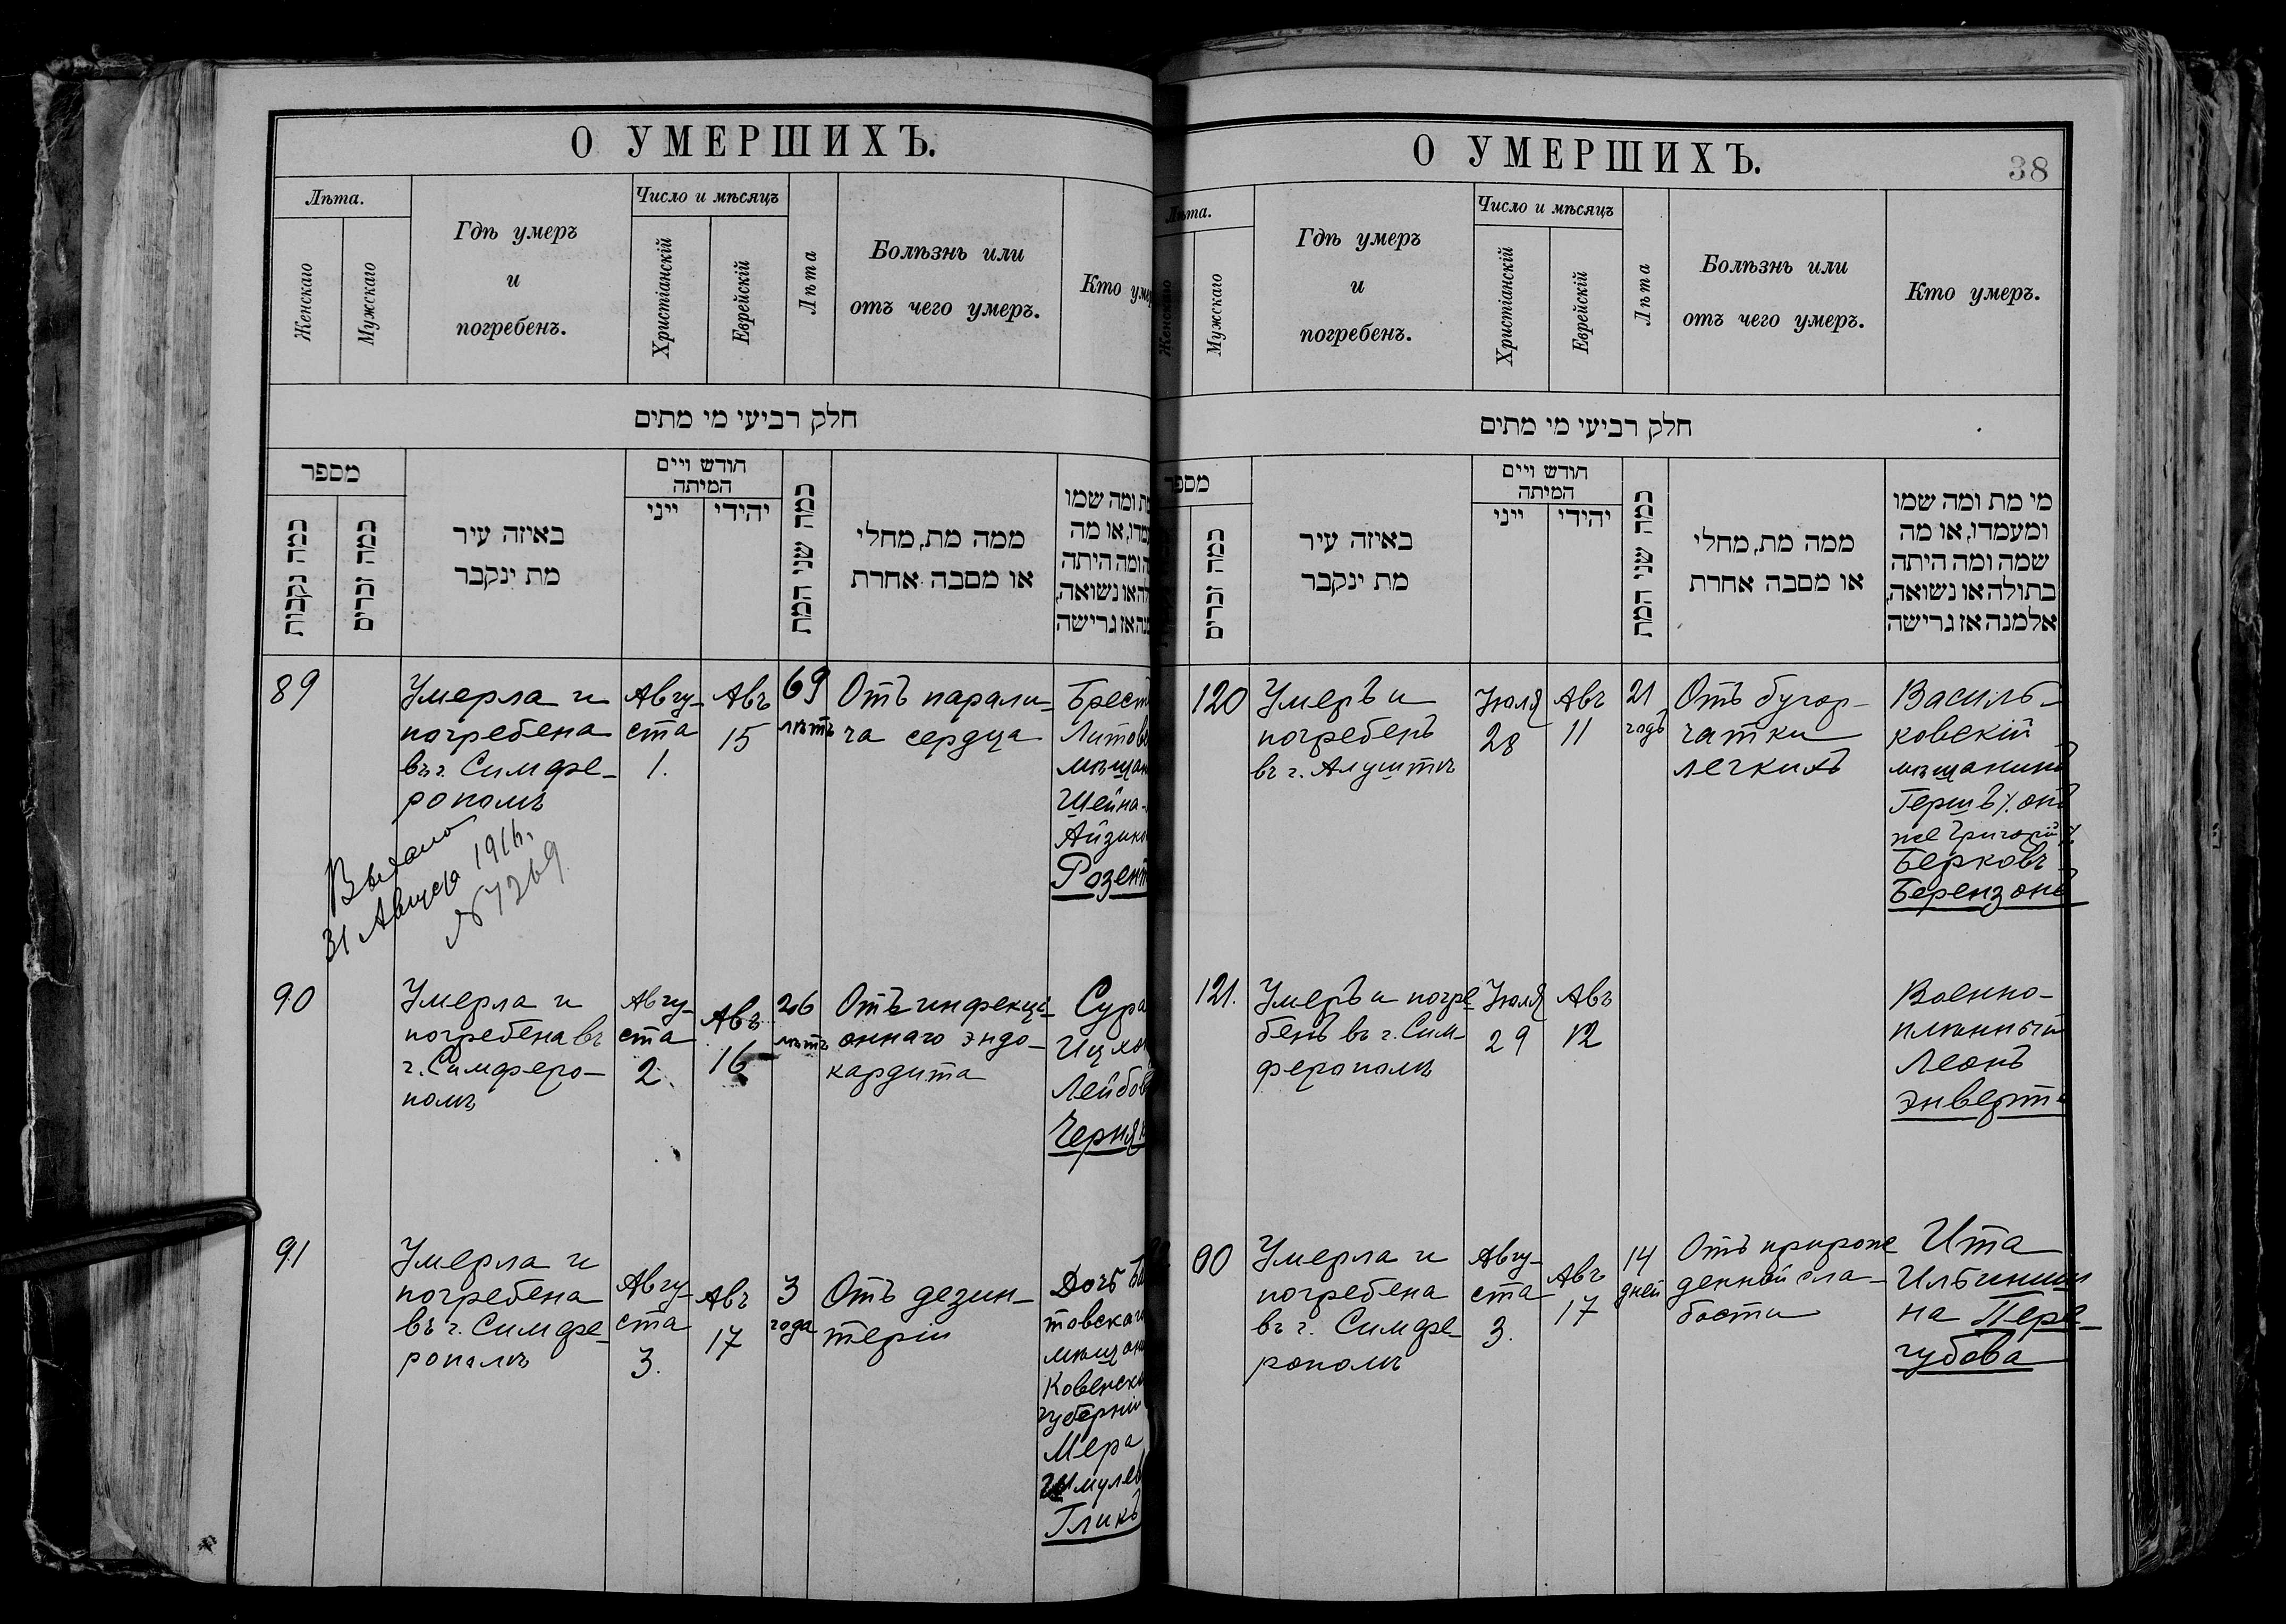 О УМЕРШИХЪ.
Лѣта.
Женскаго
Мужскаго
Гдѣ умеръ
и
погребенъ.
Число и мѣсяцъ
Христіанскій
Еврейскій
Лѣта
Болѣзнь или
отъ чего умеръ.
Кто умер
חלק רביעי מי מתים
מספר
כמה נקבות
כמה זכרים
באיזה עיר
מת ינקבר
חודש ויים
המיתה
ייני
יהודי
כמה שני המת
ממה מת, מחלי
או מסבה אחרת
ומה שמו
או מה
ומה היתה
או נשואה,
אז גרישה
89
Умерла и
погребена
въ г. Симфе-
рополѣ
Авгу-
ста
1.
Авъ
15
69
лѣтъ
Отъ парали-
ча сердца
Брест
Литов
мѣщан
Шейна-
Айзико
Розент
Выдано
31 Августа 1916г.
№ 1269
90
Умерла и
погребена въ
г. Симферо-
полѣ
Авгу-
ста
2.
Авъ
16
26
лѣтъ
Отъ инфекці-
оннаго эндо-
кардита
Сура
Ицхо
Лейбов
Черняк
91
Умерла и
погребена
въ г. Симфе-
рополѣ
Авгу-
ста
3.
Авъ
17
3
года
Отъ дезин-
теріи
Дочь
товскаго
мѣщани
Ковенско
губерніи
Мера
Шмулев
Гликъ
О УМЕРШИХЪ.
38
Лѣта.
Женскаго
Мужскаго
Гдѣ умеръ
и
погребенъ.
Число и мѣсяцъ
Христіанскій
Еврейскій
Лѣта
Болѣзнь или
отъ чего умеръ.
Кто умеръ.
חלק רביעי מי מתים
מספר
כמה זכרים
באיזה עיר
מת ינקבר
חודש ויים
המיתה
ייני
יהידי
כמה שני המת
ממה מת, מחלי
או מסבה אחרת
מי מת ומה שמו
ומעמדו, או מה
שמה ומה היתה
בתולה או נשואה,
אלמנה אז גרישה
120
Умеръ и
погребенъ
въ г. Алуштѣ
Іюля
28
Авъ
11
21
годъ
Отъ бугор-
чатки
легкихъ
Василь-
ковскій
мѣщанинъ
Гершъ /. онъ
же Григорій /.
Берковъ
Берензонъ
121.
Умеръ и погре-
бенъ въ г. Сим-
ферополѣ
Іюля
29
Авъ
12
Военно-
плѣнный
Леонъ
90
Умерла и
погребена
въ г. Симфе-
рополѣ
Авгу-
ста
3.
Авъ
17
14
дней
Отъ прирож
денной сла-
бости
Ита
Ильинич
на Пере-
губова